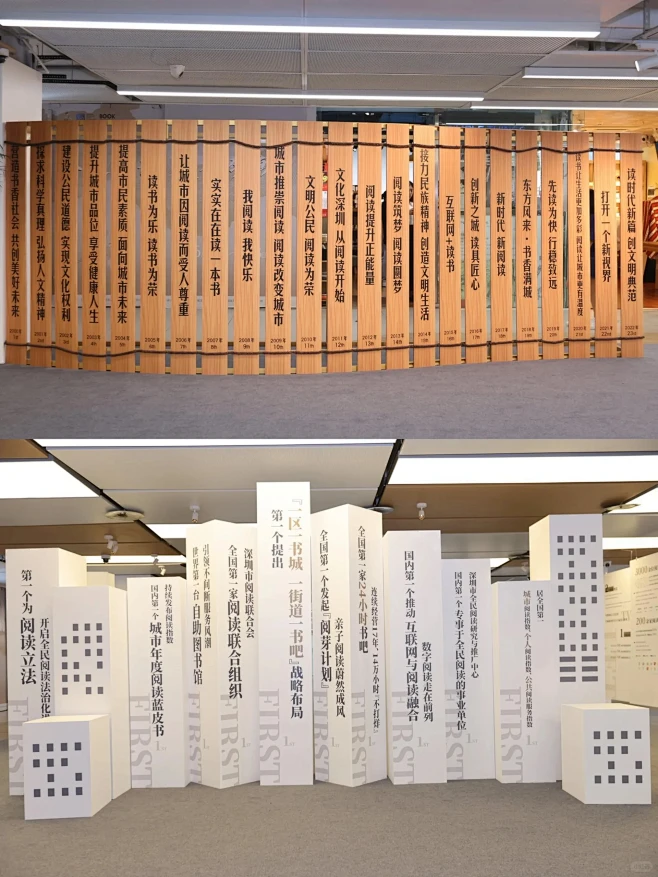 营造书香社会 共创美好未来
2000年
1th
探求科学真理 弘扬人文精神
2001年
2th
建设公民道德 实现文化权利
2002年
3th
提升城市品位 享受健康人生
2003年
4th
提高市民素质 面向城市未来
2004年
5th
读书为乐 读书为荣
2005年
6th
让城市因阅读而受人尊重
2006年
7th
实实在在读一本书
2007年
8th
我阅读 我快乐
2008年
9th
城市推崇阅读 阅读改变城市
2009年
10th
文明公民 阅读为荣
2010年
11th
文化深圳 从阅读开始
2011年
12th
阅读提升正能量
2012年
13th
阅读筑梦 阅读圆梦
2013年
14th
接力民族精神 创造文明生活
2014年
15th
互联网+读书
2015年
16th
创新之城 读具匠心
2016年
17th
新时代 新阅读
2017年
18th
东方风来·书香满城
2018年
19th
先读为快 行稳致远
2019年
20th
读书让生活更加多彩 阅读让城市更有温度
2020年
21th
打开一个新视界
2021年
22th
读时代新篇 创文明典范
2022年
23th
第一个为阅读立法
开启全民阅读法治化进
持续发布阅读指数
国内第一个城市年度阅读蓝皮书
FIRST
1st
引领不间断服务风潮
世界第一台自助图书馆
FIRST
1st
深圳市阅读联合会
全国第一家阅读联合组织
FIRST
1st
『一区一书城 一街道一书吧』战略布局
第一个提出
FIRST
1st
全国第一个发起『阅芽计划』
亲子阅读蔚然成风
FIRST
1st
全国第一家24小时书吧
连续经营17年,14万小时『不打烊』
FIRST
1st
国内第一个推动互联网与阅读融合
数字阅读走在前列
FIRST
1st
深圳市全民阅读研究与推广中心
国内第一个专事于全民阅读的事业单位
FIRST
1st
居全国第一
城市阅读指数、个人阅读指数、公共阅读服务指数
FIRST
1st